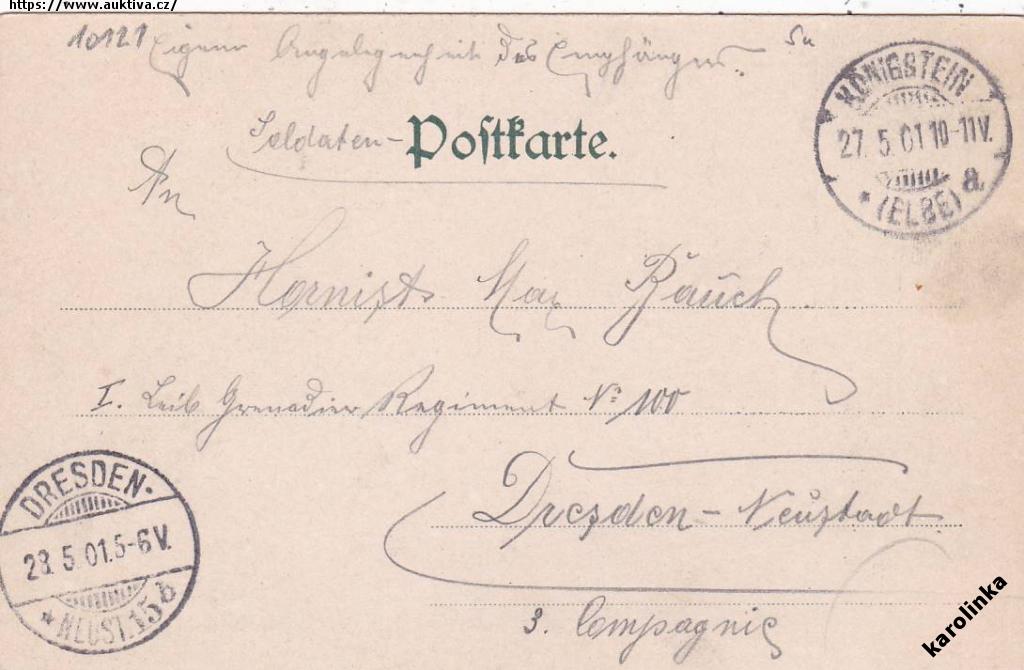 https://www.auktiva.cz/
10121 Eigene Angelegenheit des Empfängers. Su
Soldaten-Postkarte.
KÖNIGSTEIN
27. 5. 01 10-11V.
* (ELBE) a.
An
Hornist Max Bauch
I. Leib Grenadier Regiment No 100
DRESDEN-
28. 5. 01. 5-6V.
* NEUST. 15 b
Dresden-Neustadt
3. Compagnie
karolinka